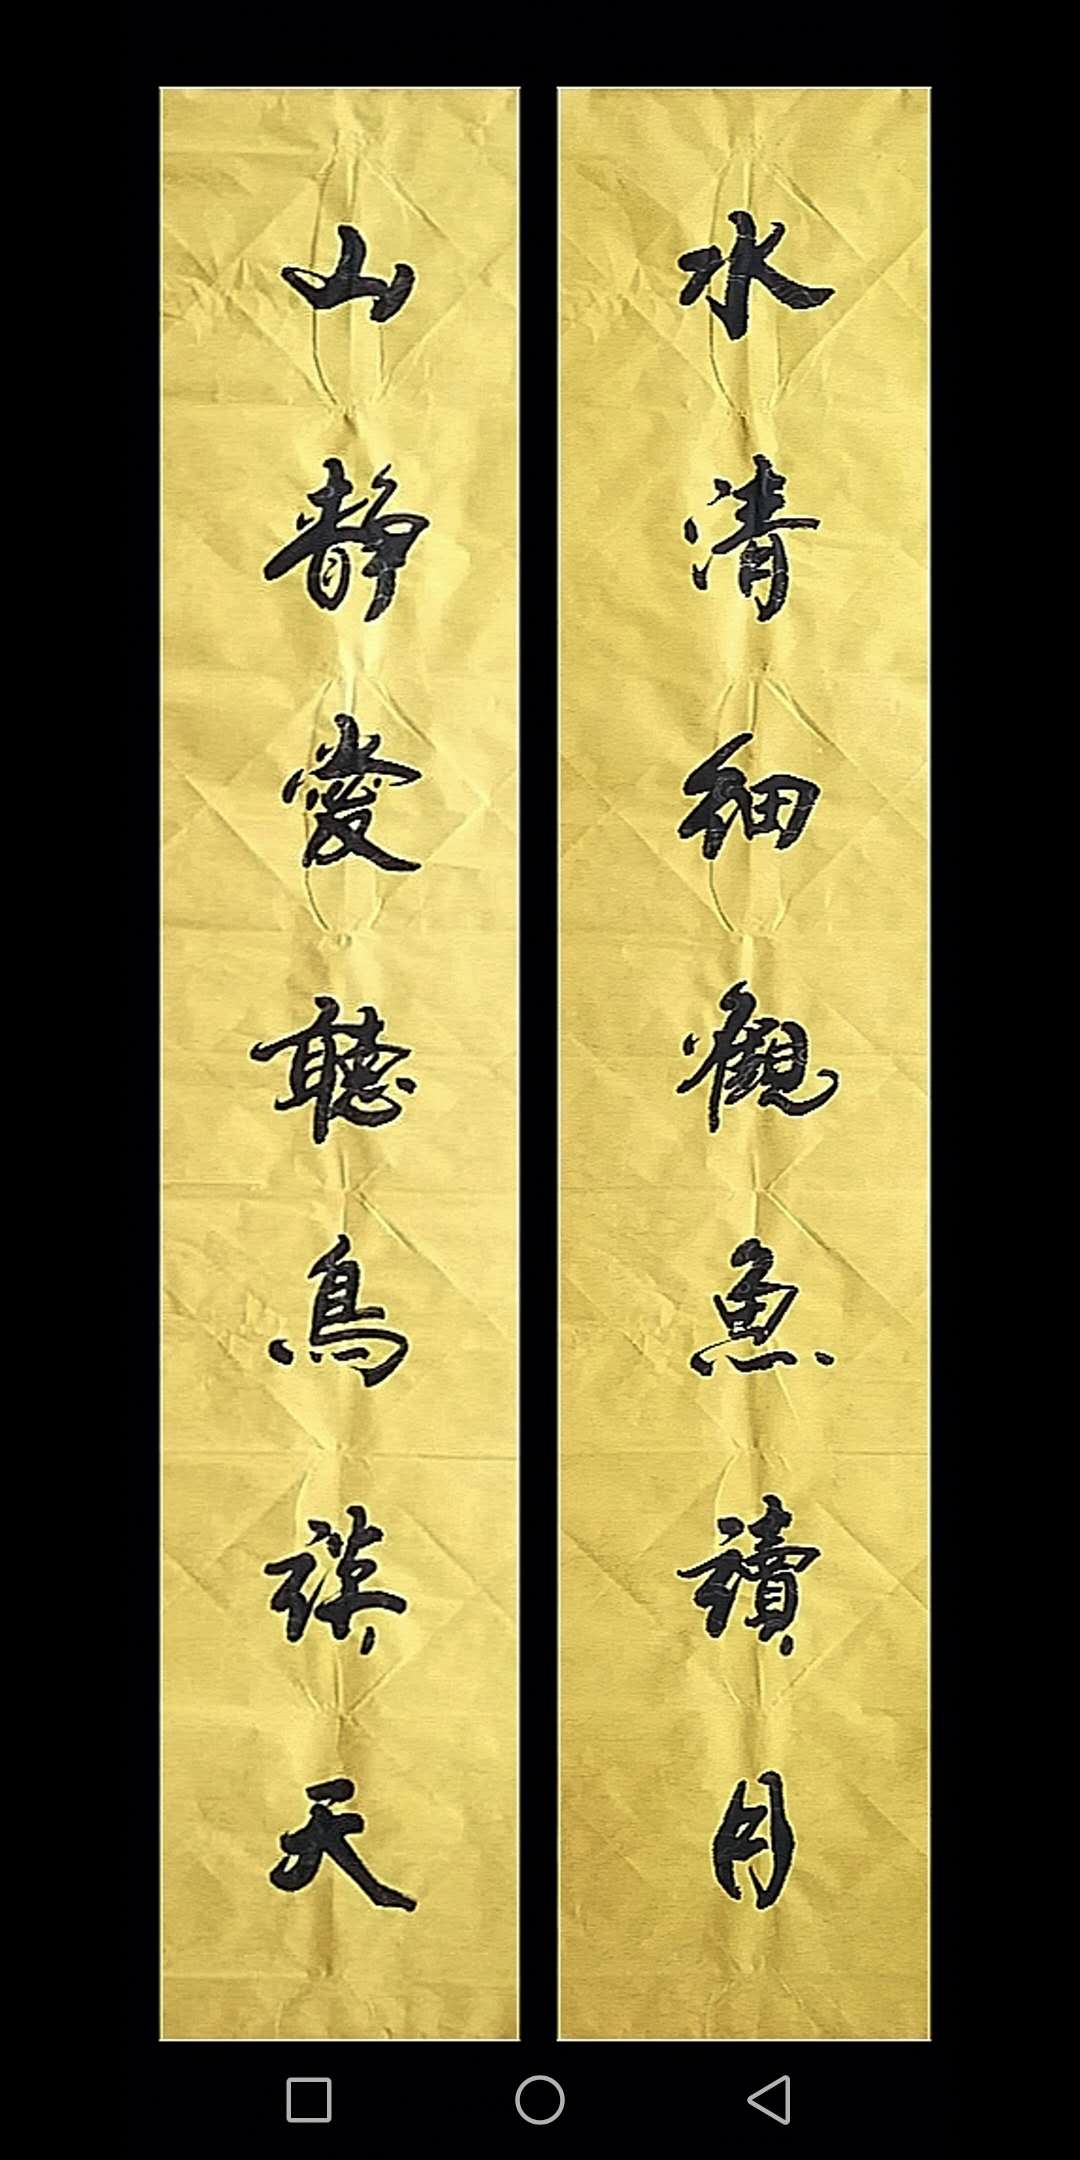 水清細觀魚讀月
山靜愛聽鳥談天